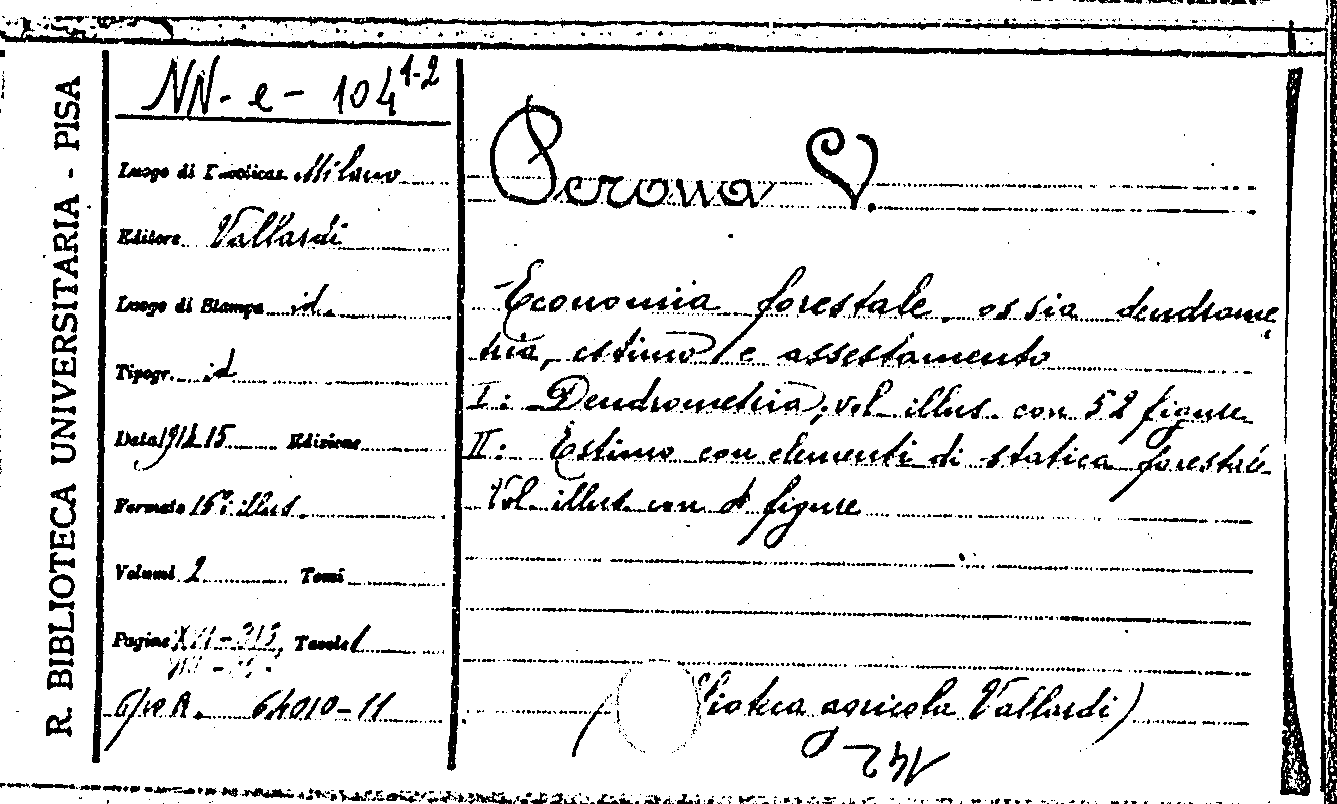 R. BIBLIOTECA UNIVERSITARIA - PISA
NN- e - 104 1-2
Luogo di Pubblicaz. Milano
Editore Vallardi
Luogo di Stampa id.
Tipogr. id
Data 1914 15 Edizione
Formato 16°: illus.
Volumi 2 Tomi
Pagine XII - 315, Tavole 1
64010-11
Perona V.
Economia forestale, ossia dendrome
tria, estimo e assestamento
I: Dendrometria; vol illus. con 52 figure
II: Estimo con elementi di statica forestale
Vol. illus. con figure
( lioteca agricola Vallardi)
142